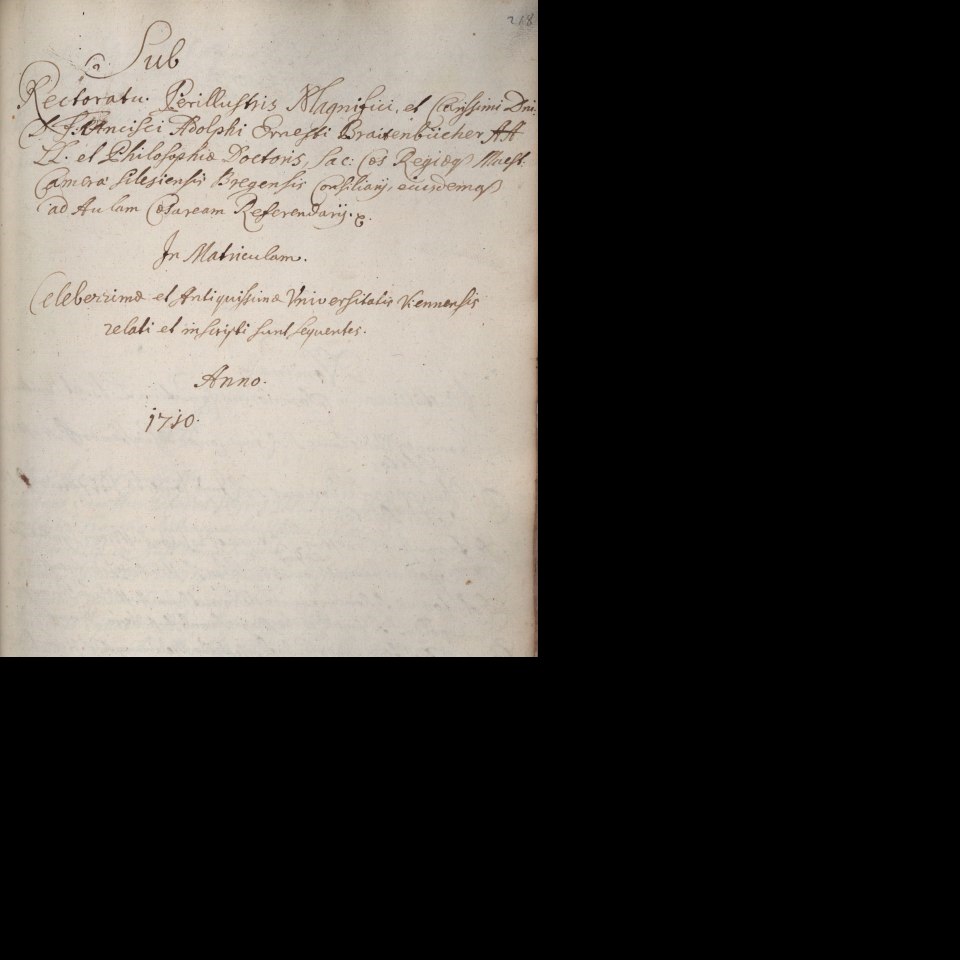 218
Sub
Rectoratu. Perillustris Magnifici, et Clarissimi Dni.
D. Francisci Adolphi Ernesti Braitenbücher AA
LL. et Philosophiæ Doctoris, Sac: Cæs Regiæq Maest.
Cameræ Silesiensis Bregensis Consiliarij, eiusdemq
ad Aulam Cæsaream Referendarij.
In Matriculam.
Celeberrimæ et Antiquissimæ Vniversitatis Viennensis
relati et inscripti sunt sequentes.
Anno.
1710.